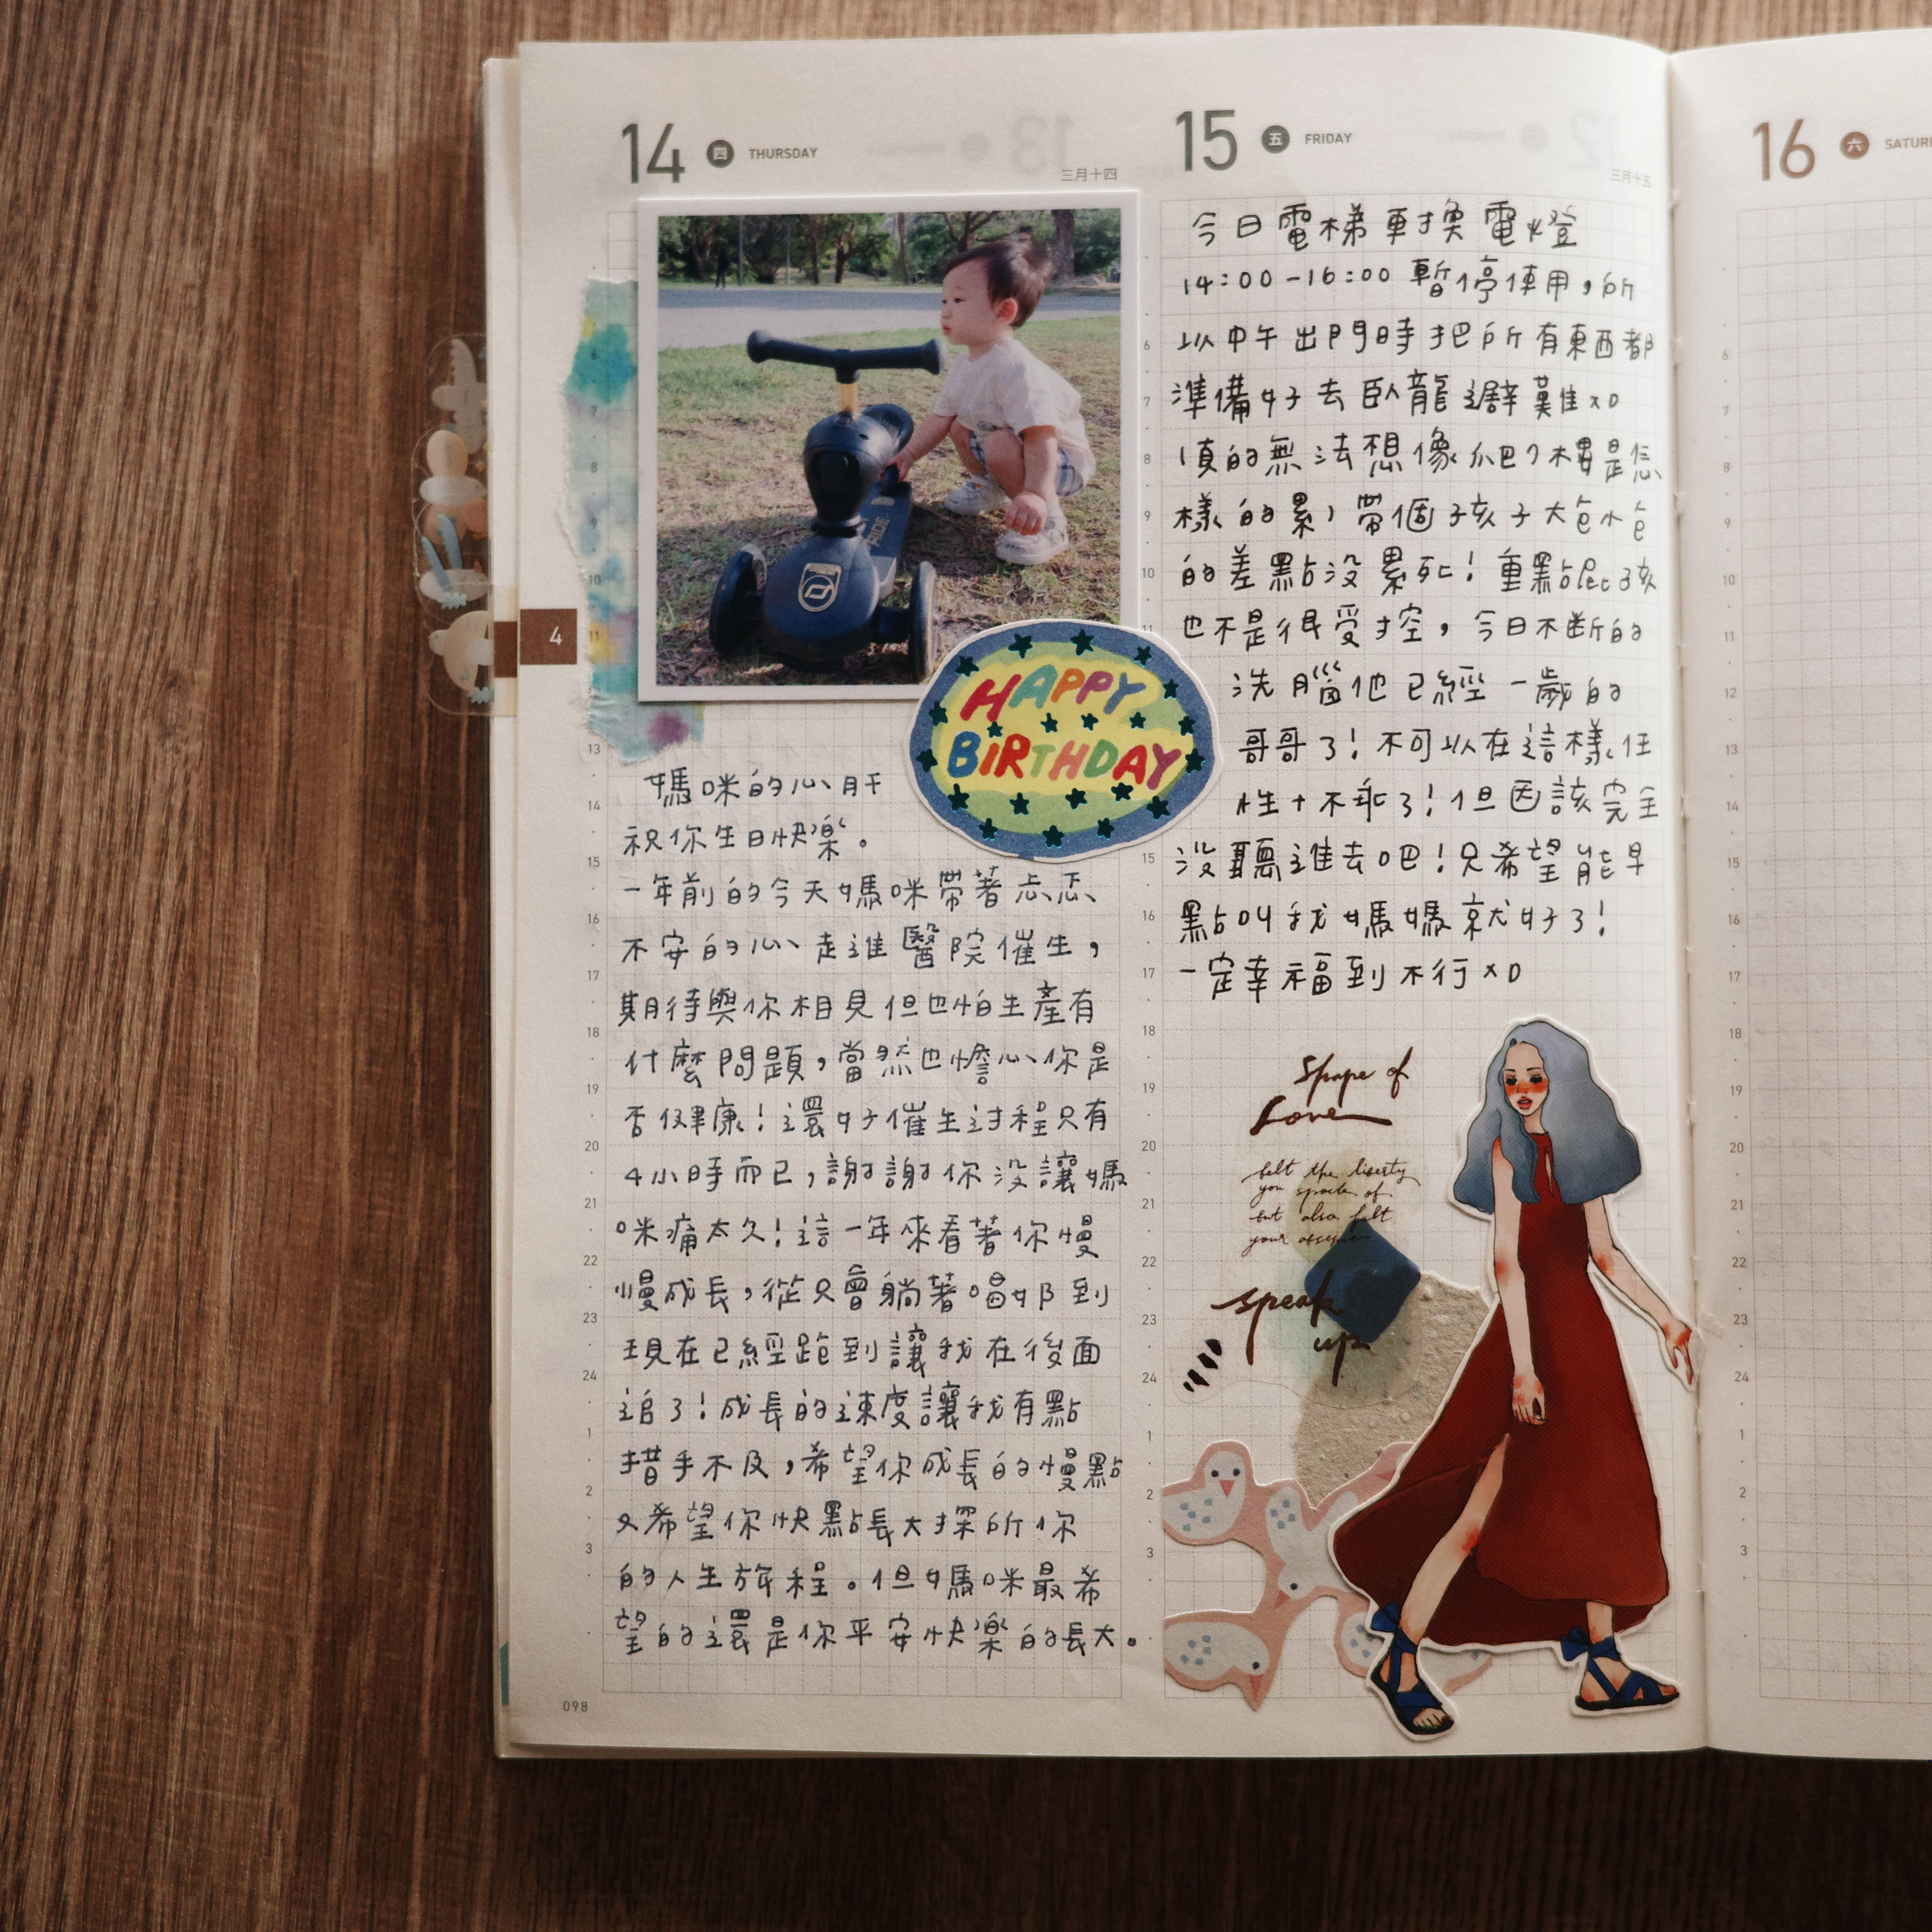 14 四 THURSDAY
三月十四
HAPPY
BIRTHDAY
RIDE
4
媽咪的心肝
祝你生日快樂。
一年前的今天媽咪帶著忐忑
不安的心走進醫院催生,
期待與你相見但也怕生產有
什麼問題,當然也擔心你是
否健康!還好催生过程只有
4小時而已,謝謝你没讓媽
咪痛太久!這一年來看著你慢
慢成長,從只會躺著喝奶到
現在已經跑到讓我在後面
追了!成長的速度讓我有點
措手不及,希望你成長的慢點
又希望你快點長大探所你
的人生旅程。但媽咪最希
望的還是你平安快樂的長大。
098
15 五 FRIDAY
三月十五
今日電梯車換電燈
14:00-16:00 暫停使用,所
以中午出門時把所有東西都
準備好去臥龍避難XD
真的無法想像爬7樓是怎
樣的累,帶個孩子大包小包
的差點没累死!重點屁孩
也不是很受控,今日不斷的
洗腦他已經一歲的
哥哥了!不可以在這樣任
性+不乖了!但因該完全
没聽進去吧!只希望能早
點叫我媽媽就好了!
一定幸福到不行XD
Shape of
Love
felt the liberty
you speak of
but also felt
your
speak
up
16 六
6
7
8
9
10
11
12
13
14
15
16
17
18
19
20
21
22
23
24
1
2
3